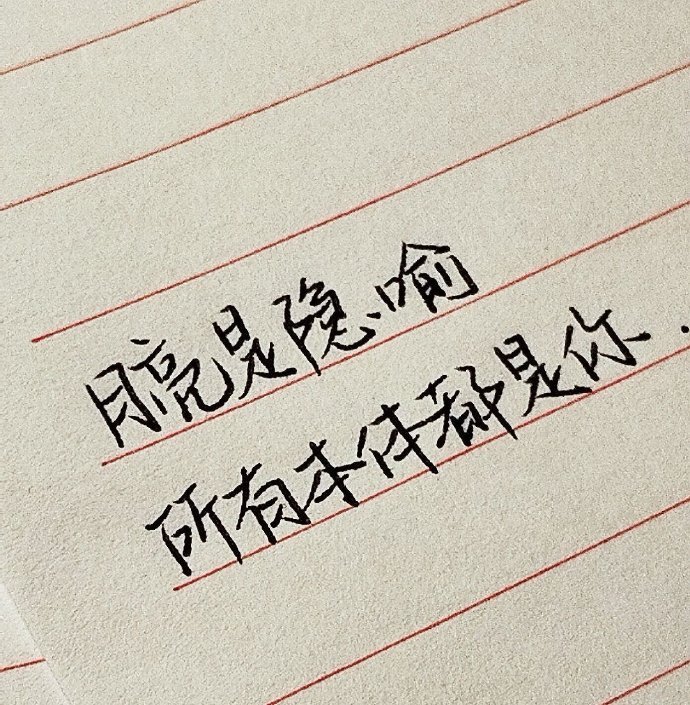 月亮是隐喻
所有本体都是你.